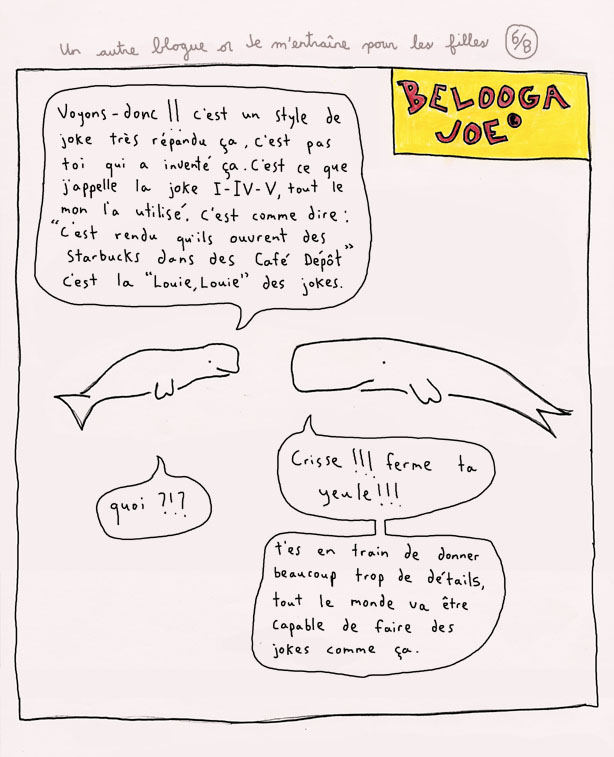 Un autre blogue où Je m'entraîne pour les filles 6/8
BELOOGA
JOE
Voyons-donc !! c'est un style de
joke très répandu ça, c'est pas
toi qui a inventé ça. C'est ce que
j'appelle la joke I-IV-V, tout le
mon l'a utilisé. C'est comme dire :
"C'est rendu qu'ils ouvrent des
Starbucks dans des Café Dépôt"
C'est la "Louie, Louie" des jokes.
Crisse !!! ferme ta
yeule !!!
quoi ?!?
t'es en train de donner
beaucoup trop de détails,
tout le monde va être
capable de faire des
jokes comme ça.